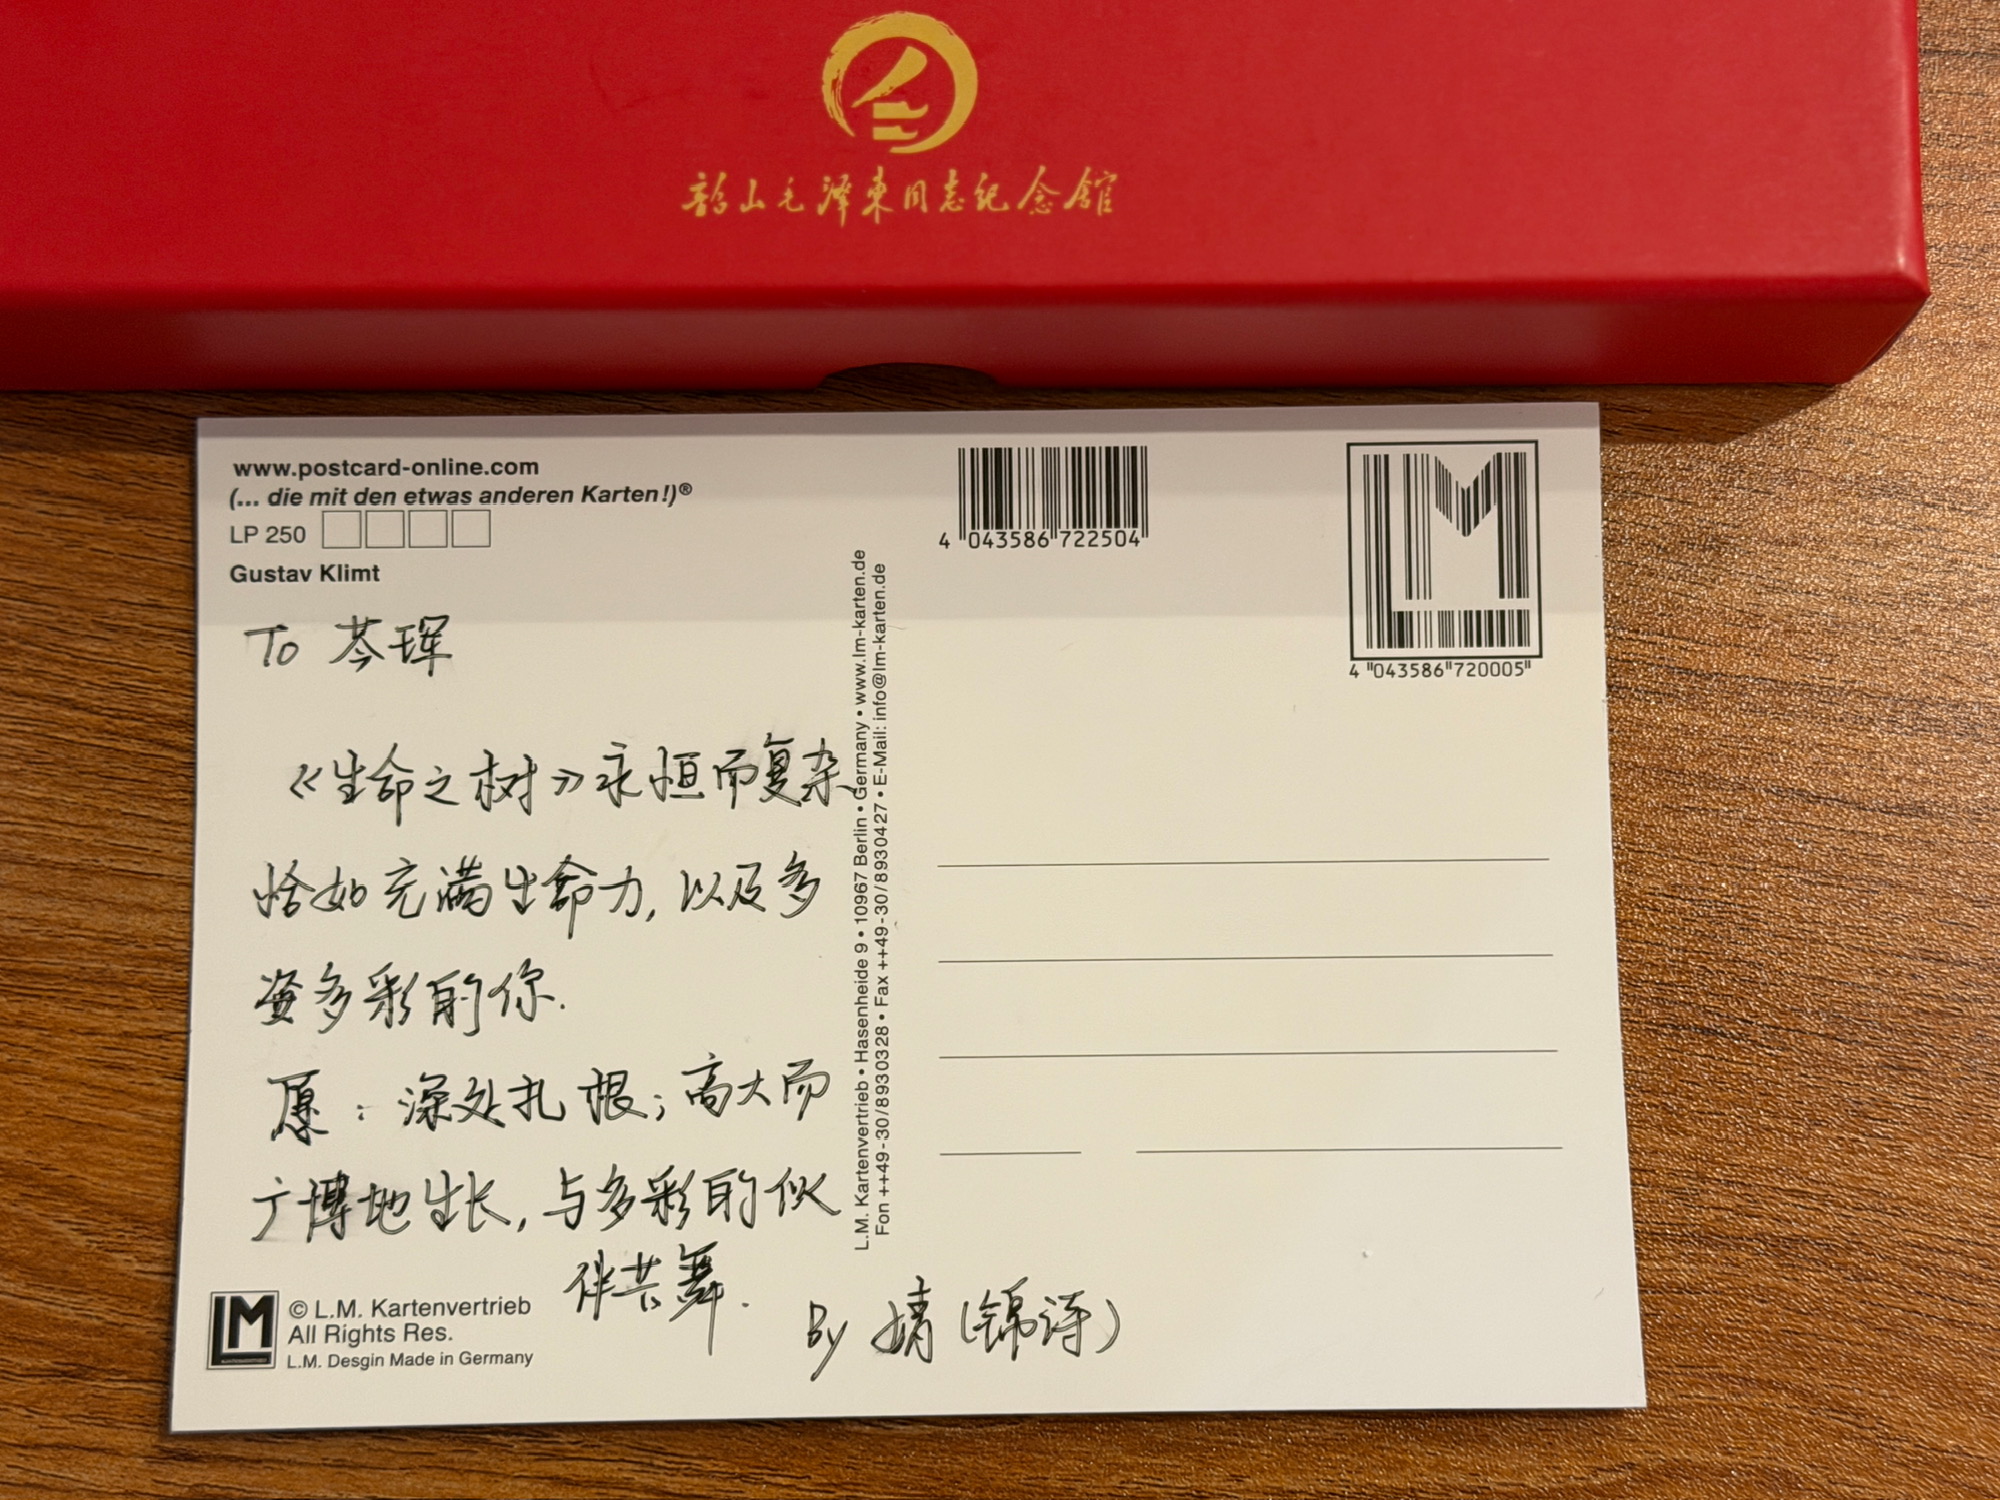 韶山毛泽东同志纪念馆
www.postcard-online.com
(... die mit den etwas anderen Karten!)®
LP 250
Gustav Klimt
4 043586 722504
4 043586 720005
To 芩珲
《生命之树》永恒而复杂
恰如充满生命力, 以及多
姿多彩的你.
愿: 深处扎根; 高大而
广博地生长, 与多彩的伙
伴共舞.
By 婧 (锦诗)
L.M. Kartenvertrieb • Hasenheide 9 • 10967 Berlin • Germany • www.lm-karten.de
Fon ++49-30/8930328 • Fax ++49-30/8930427 • E-Mail: info@lm-karten.de
LM
© L.M. Kartenvertrieb
All Rights Res.
L.M. Desgin Made in Germany